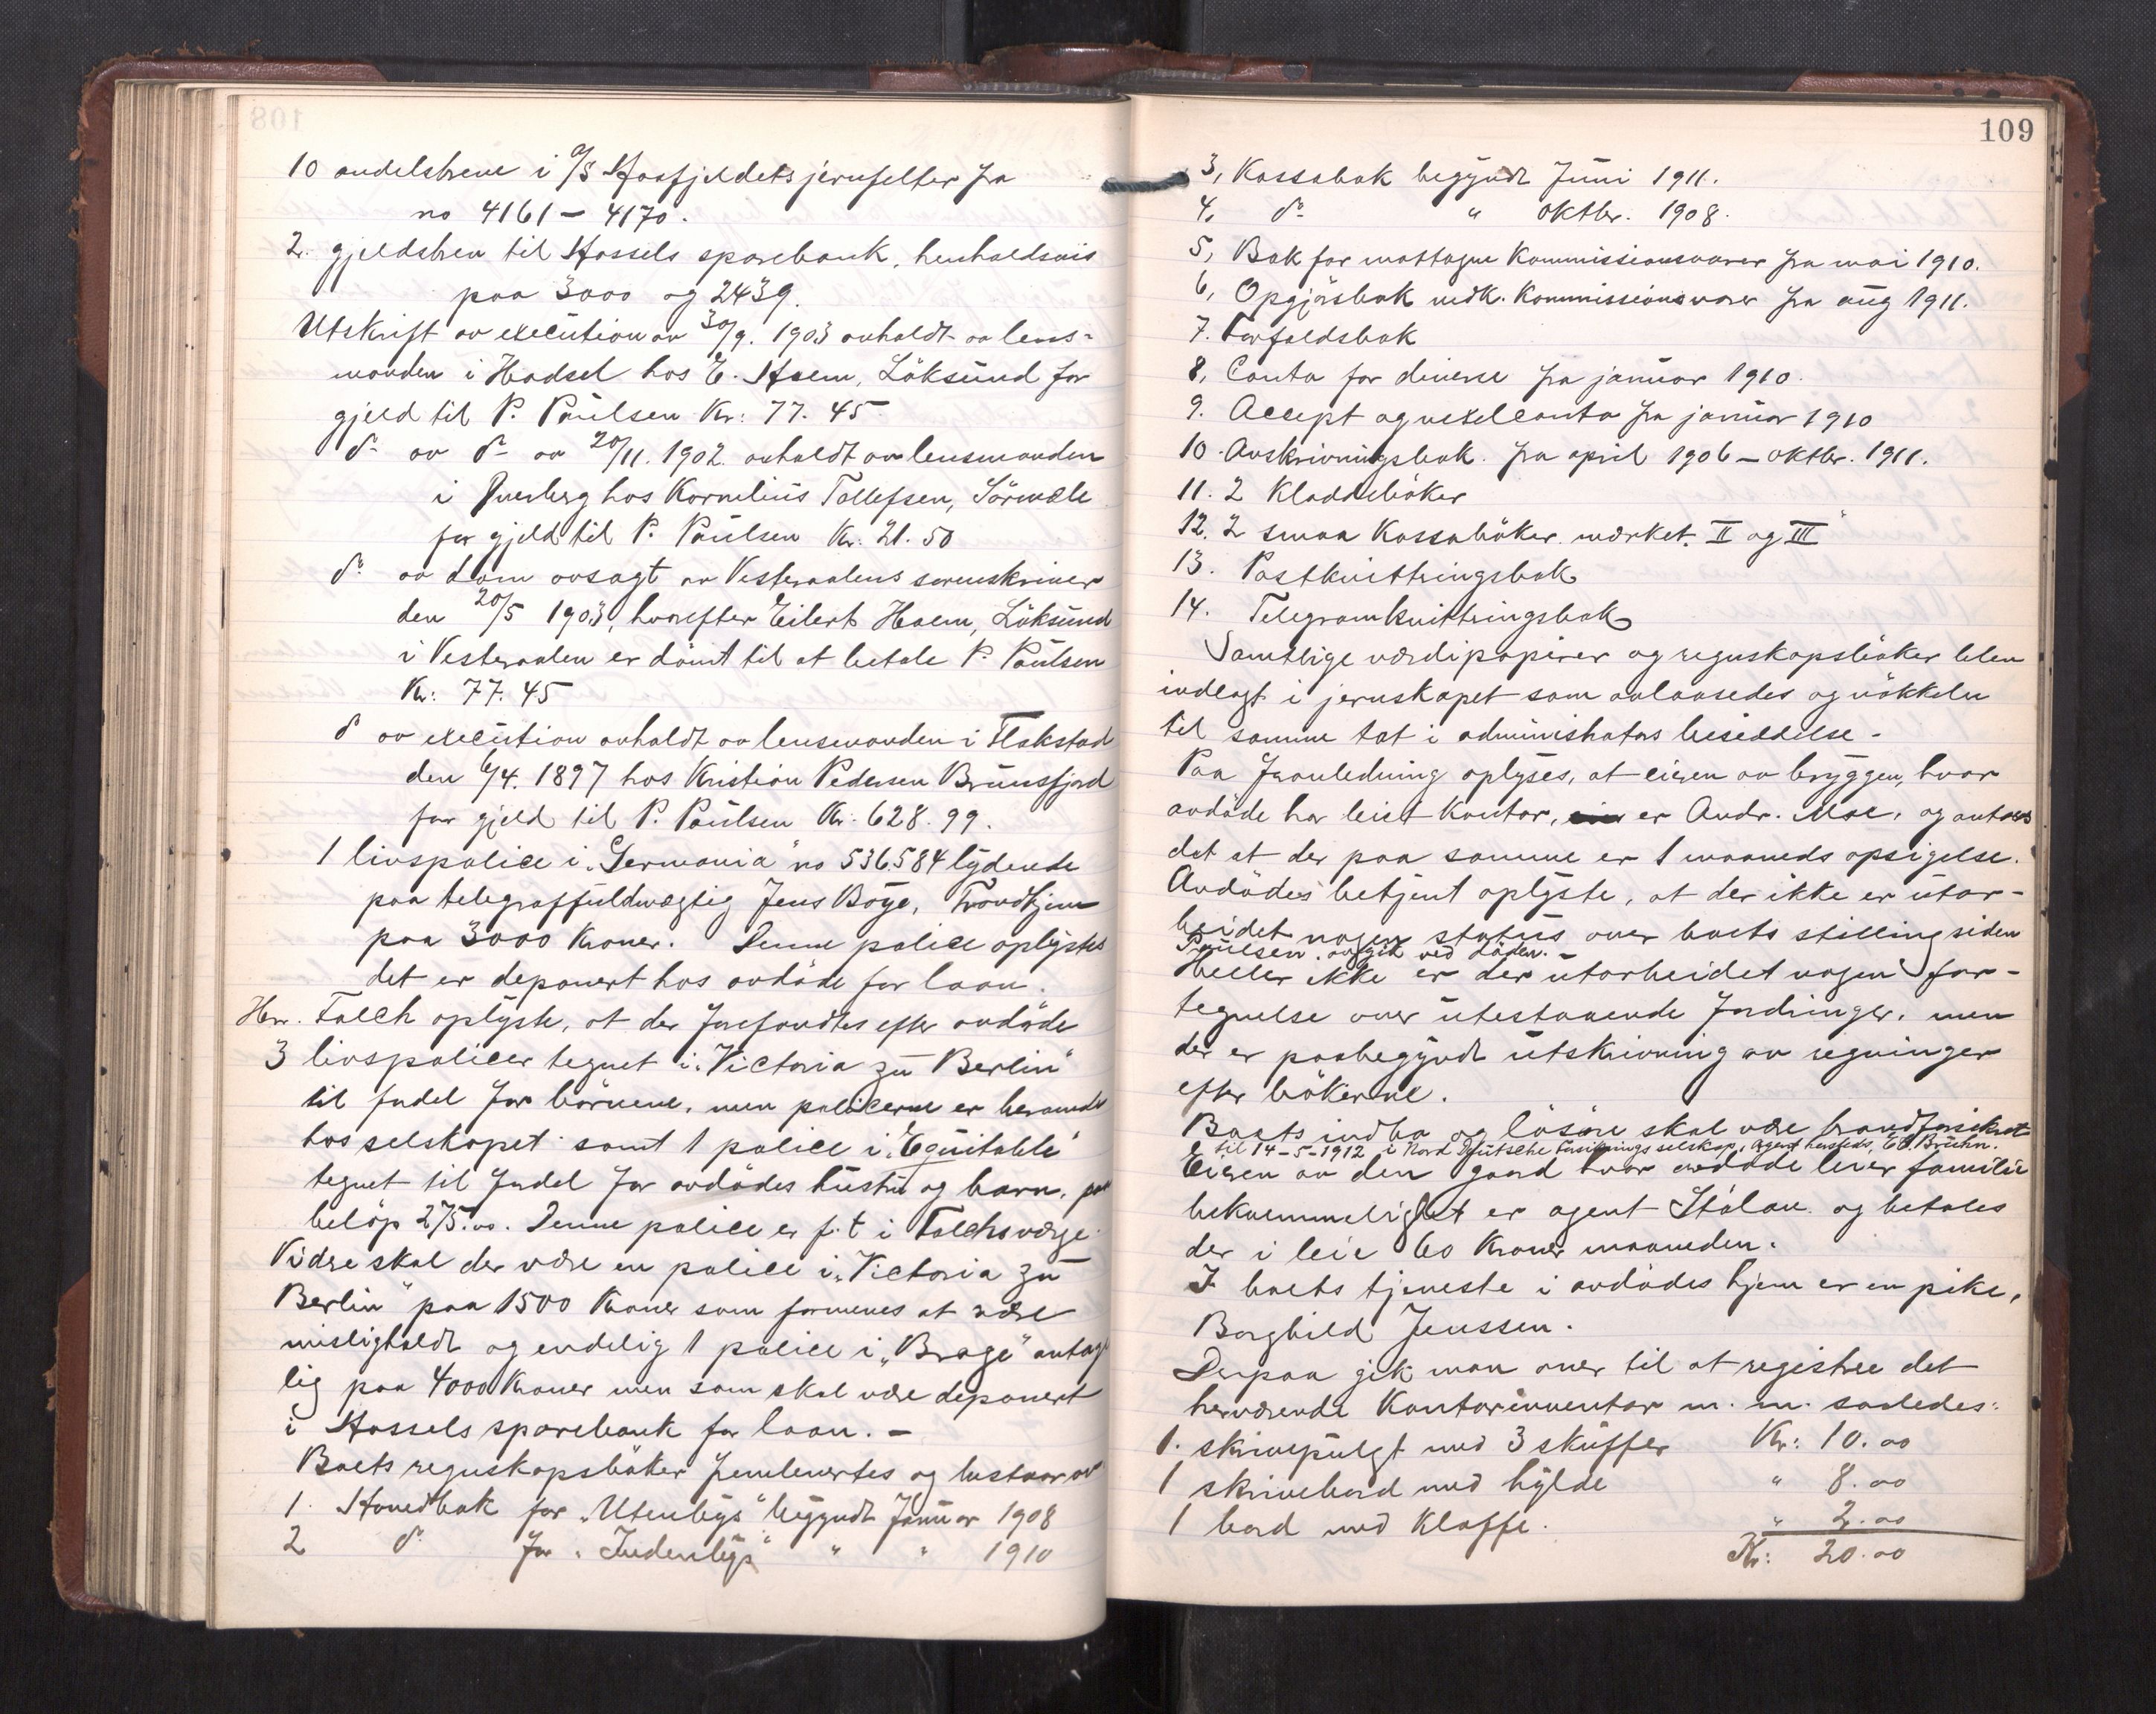 10 andelsbreve i A/S Haafjeldets jernfelter fra
no 4161 – 4170.
2 gjeldsbrev til Hassels sparebank, henholdsvis
paa 3000 og 2439.
Utskrift av execution av 30/9. 1903 avholdt av lens-
manden i Hadsel hos E. Haem, Löksund for
gjeld til P. Paulsen Kr: 77.45
do av do av 20/11. 1902. avholdt av lensmanden
i hos Kornelius Tollefsen,
for gjeld til P. Paulsen Kr. 21.50
do av dom avsagt av Vesteraalens sorenskriver
den 20/5 1903, hvorefter Eilert Haem, Löksund
i Vesteraalen er dömt til at betale P. Paulsen
Kr: 77.45
do av execution avholdt av lensmanden i Flakstad
den 6/4. 1897 hos Kristian Pedersen Brunsfjord
for gjeld til P. Paulsen Kr. 628.99.
1 livspolice i „Germania" no 536584 lydende
paa telegraffuldmægtig Jens Böye, Trondhjem
paa 3000 Kroner. Denne police oplystes
det er deponert hos avdöde for laan.
Herr. Falch oplyste, at der forefandtes efter avdöde
3 livspolicer tegnet i „Victoria zu Berlin"
til fordel for börnene, men policerne er beroende
hos selskapet samt 1 police i „Equitable"
tegnet til fordel for avdödes hustru og barn, paa
belöp 275.00. Denne police er f.t i Falchs værge.
Vidre skal der være en police i „Victoria zu
Berlin" paa 1500 Kroner som formenes at være
misligholdt og endelig 1 police i „Brage" antage
lig paa 4000 Kroner men som skal være deponert
i Hassels sparebank for laan. –
Boets regnskapsböker fremlevertes og bestaar av
1. Hovedbok for „Utenbys" begyndt Januar 1908
2 do for „Indenbys" " " 1910
109
3, Kassabok begyndt Juni 1911.
4, do " oktbr. 1908.
5, Bok for mottagne Kommissionsvarer fra mai 1910.
6, Opgjörsbok vedk. Kommissionsvarer fra aug 1911.
7. Forfaldsbok
8, Conto for diverse fra januar 1910.
9. Accept og vexelconto fra januar 1910
10. Avskrivningsbok. fra april 1906 – oktbr. 1911.
11. 2 Kladdeböker
12. 2 smaa Kassaböker mærket. II og III
13. Postkvitteringsbok
14. Telegramkvitteringsbok
Samtlige værdipapirer og regnskapsböker blev
indlagt i jernskapet som avlaasedes og nökkelen
til samme tat i administrators besiddelse –
Paa foranledning oplyses, at eieren av bryggen, hvor
avdöde har leiet kontor, er Andr. Moe, og antaes
det at der paa samme er 1 maaneds opsigelse.
Avdödes betjent oplyste, at der ikke er utar-
beidet nogen status over boets stilling siden
Paulsen avgik ved döden. –
Heller ikke er der utarbeidet nogen for-
tegnelse over utestaaende fordringer, men
der er paabegyndt utskrivning av regninger
efter bökerne.
Boets indbo og lösöre skal være brandforsikret
til 14-5-1912 i Nord Deutsche forsikringsselskap, Agent hersteds, Ed. Bruhn.
Eieren av den gaard hvor avdöde leier familie
bekvemmelighet er agent Stölan og betales
der i leie 60 Kroner maaneden.
I boets tjeneste i avdödes hjem er en pike,
Borghild Jenssen.
Derpaa gik man over til at registrere det
herværende Kontorinventar m. m. saaledes:
1. skrivepulgt med 3 skuffer Kr: 10.00
1 skrivebord med hylde " 8.00
1 bord med Klaffe. " 2.00
Kr: 20.00